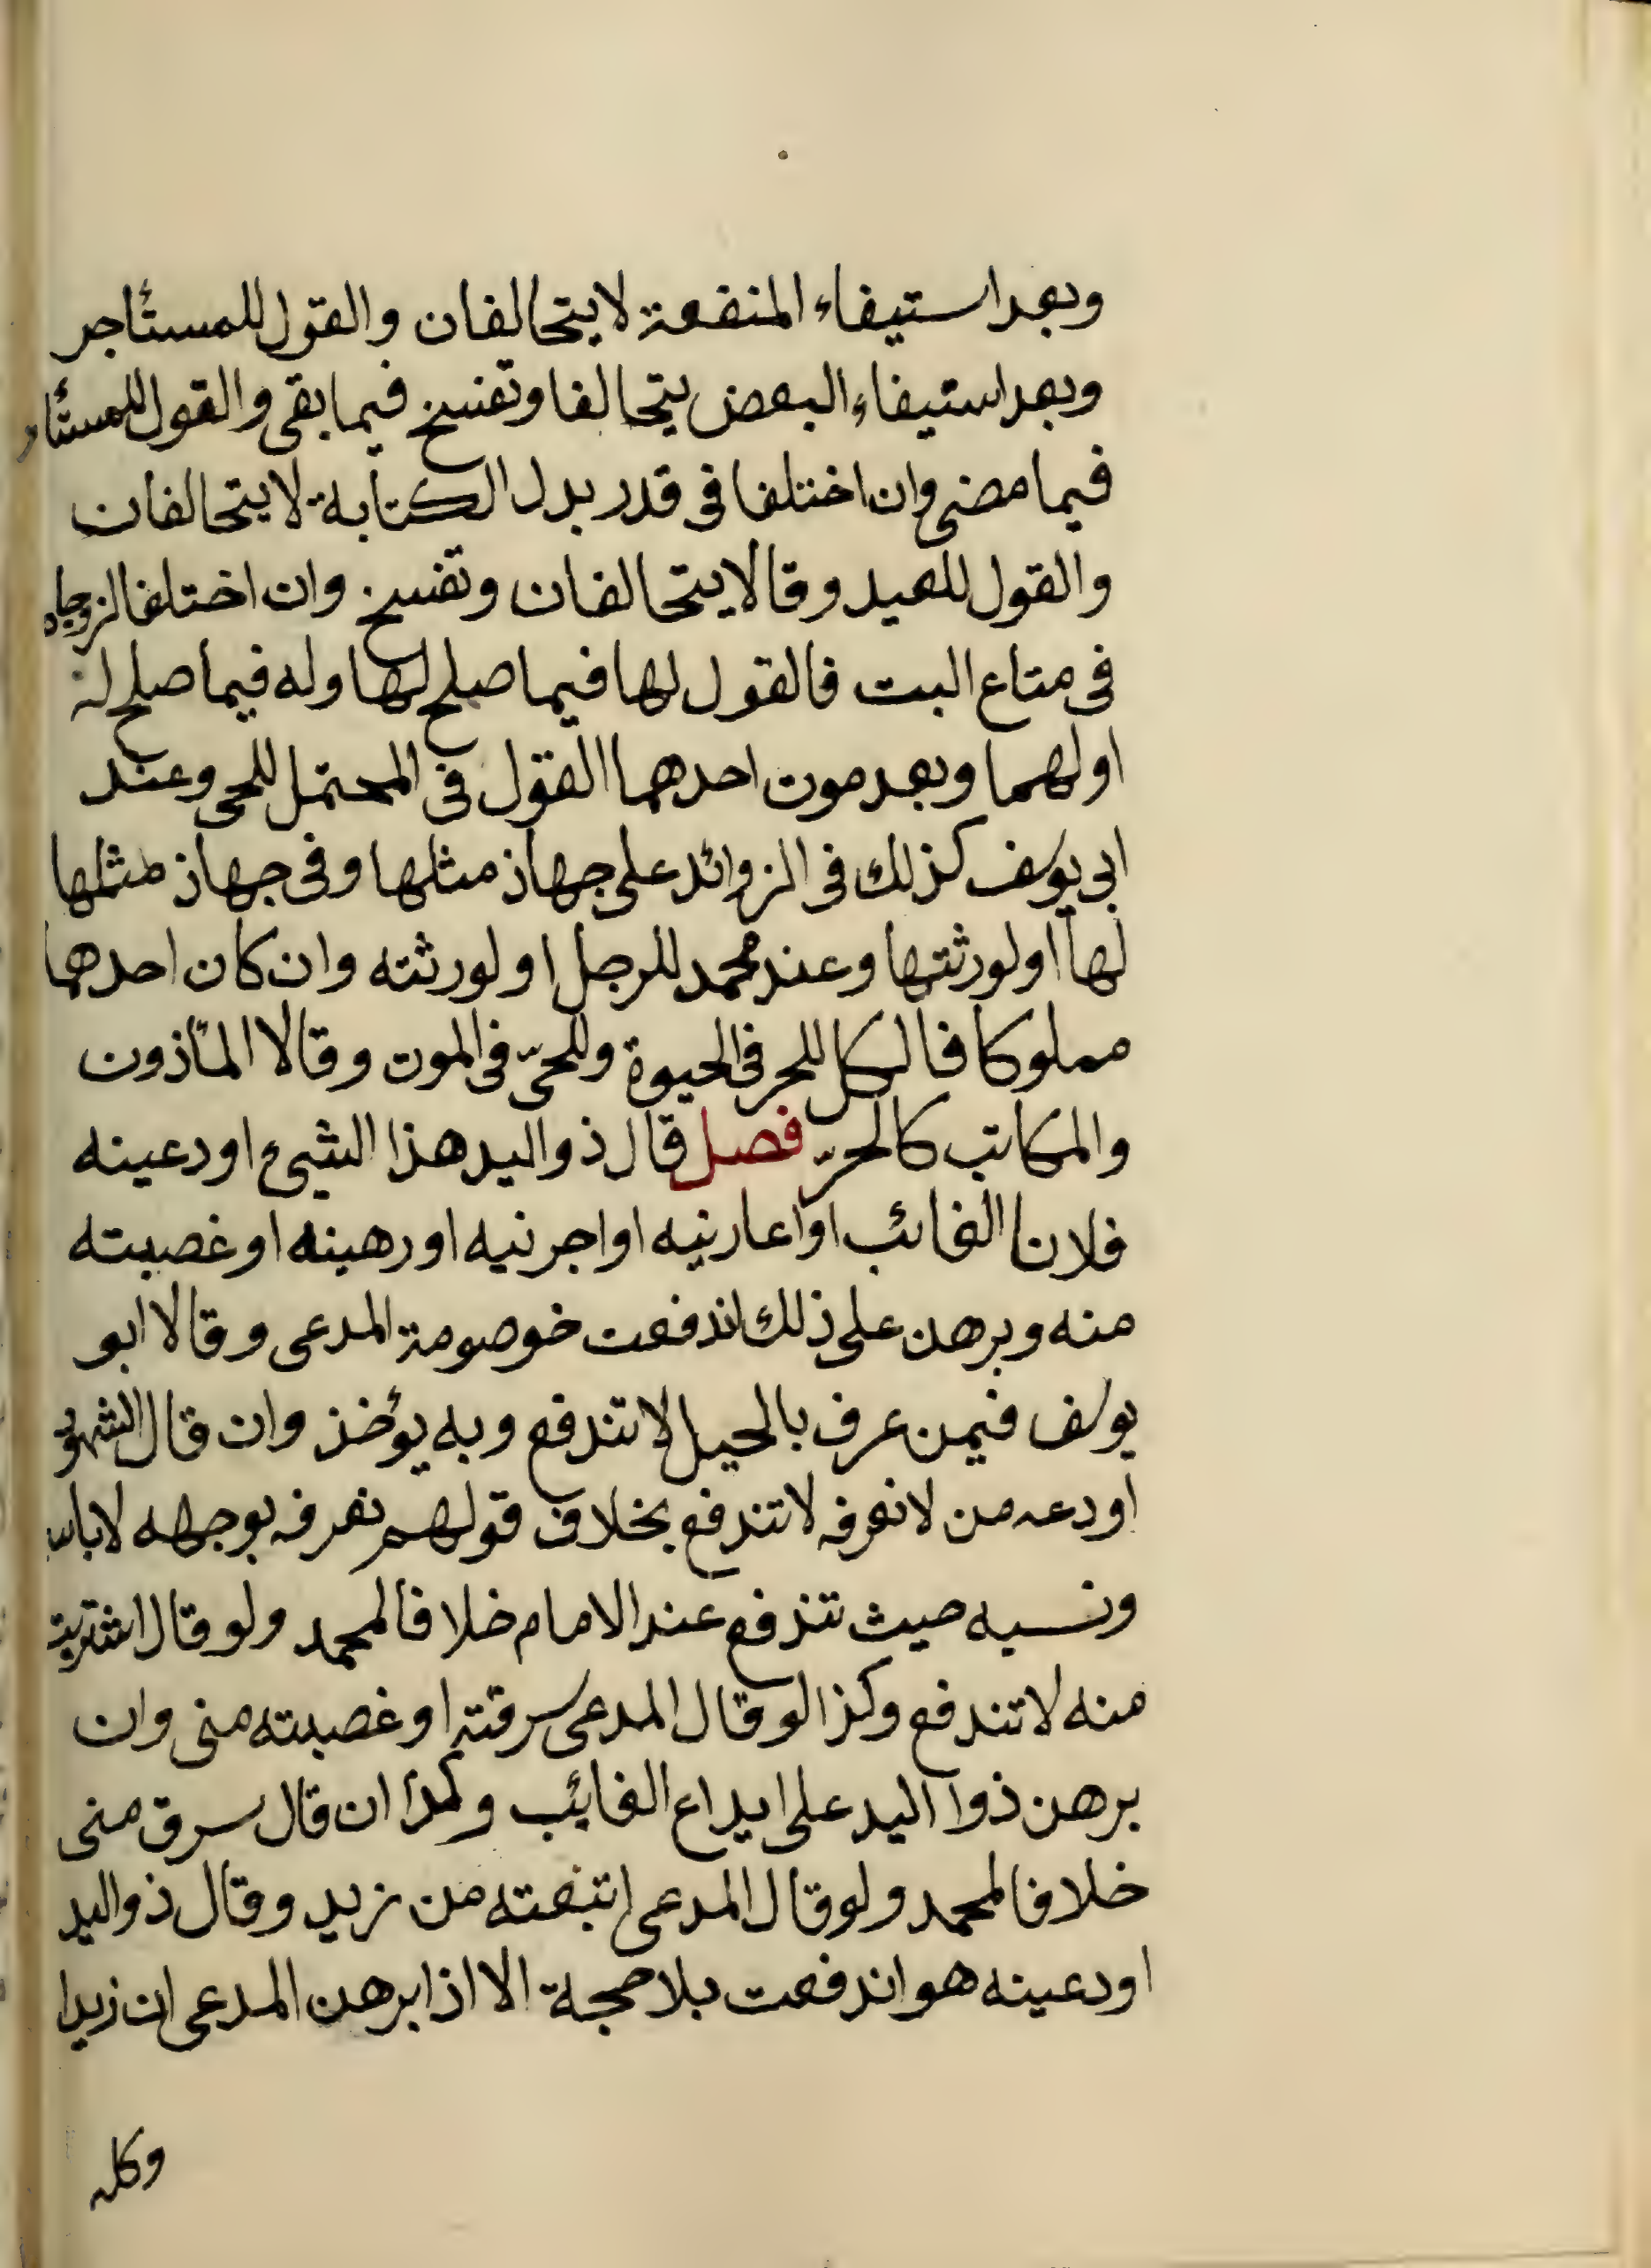 وبعد استيفاء المنفعة لا يتحالفان والقول للمستأجر
وبعد استيفاء البعض يتحالفا وتفسخ فيما بقى والقول للمستأر
فيما مضى وان اختلفا فى قدر بدل الكتابة لا يتحالفان
والقول للعبد وقالا يتحالفان وتفسخ وان اختلفا الزوجان
فى متاع البت فالقول لها فيما صلح لها وله فيما صلح له
او لهما وبعد موت احدهما القول فى المحتمل للحى وعند
ابى يوسف كذلك فى الزوائد على جهاز مثلها وفى جهاز مثلها
لها او لورثتها وعند محمد للرجل او لورثته وان كان احدهما
مملوكا فالكل للحر فى الحيوة وللحىّ فى الموت وقالا المأذون
والمكاتب كالحرّ فصل قال ذو اليد هذا الشيء اودعينه
فلانا الغائب او اعارنيه او اجرنيه او رهينه او غصبته
منه وبرهن على ذلك اندفعت خوصومة المدعى وقالا ابو
يوسف فيمن عرف بالحيل لا تندفع وبه يؤخذ وان قال الشهود
اودعه من لا نعرفه لا تندفع بخلاف قولهم نعرفه بوجهه لا باس
ونسبه حيث تندفع عند الامام خلافا لمحمد ولو قال اشتريته
منه لا تندفع وكذا لو قال المدعى سرقته او غصبته منى وان
برهن ذوا اليد على ايداع الغائب وكذا ان قال سرق منى
خلافا لمحمد ولو قال المدعى ابتعته من زيد وقال ذو اليد
اودعينه هو اندفعت بلا حجة الا اذا برهن المدعى ان زيدا
وكله